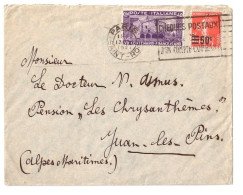 POSTE ITALIANE
CHEQUES POSTAUX
50c
Monsieur
Le Docteur V. Asmus.
Pension "Les Chrysanthèmes."
Juan-les-Pins.
(Alpes Maritimes)